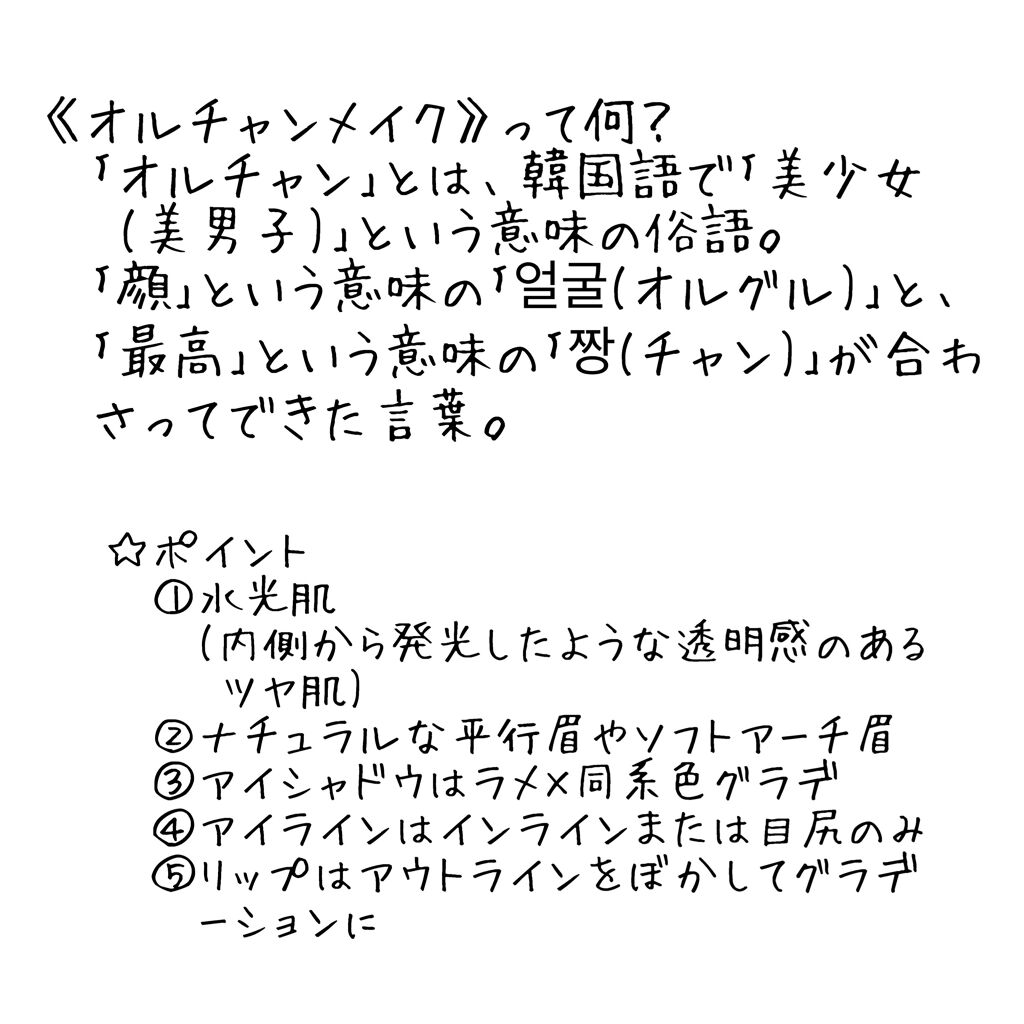 《オルチャンメイク》って何?
「オルチャン」とは、韓国語で「美少女
(美男子)」という意味の俗語。
「顔」という意味の「얼굴(オルグル)」と、
「最高」という意味の「짱(チャン)」が合わ
さってできた言葉。
☆ポイント
①水光肌
(内側から発光したような透明感のある
ツヤ肌)
②ナチュラルな平行眉やソフトアーチ眉
③アイシャドウはラメ×同系色グラデ
④アイラインはインラインまたは目尻のみ
⑤リップはアウトラインをぼかしてグラデ
ーションに